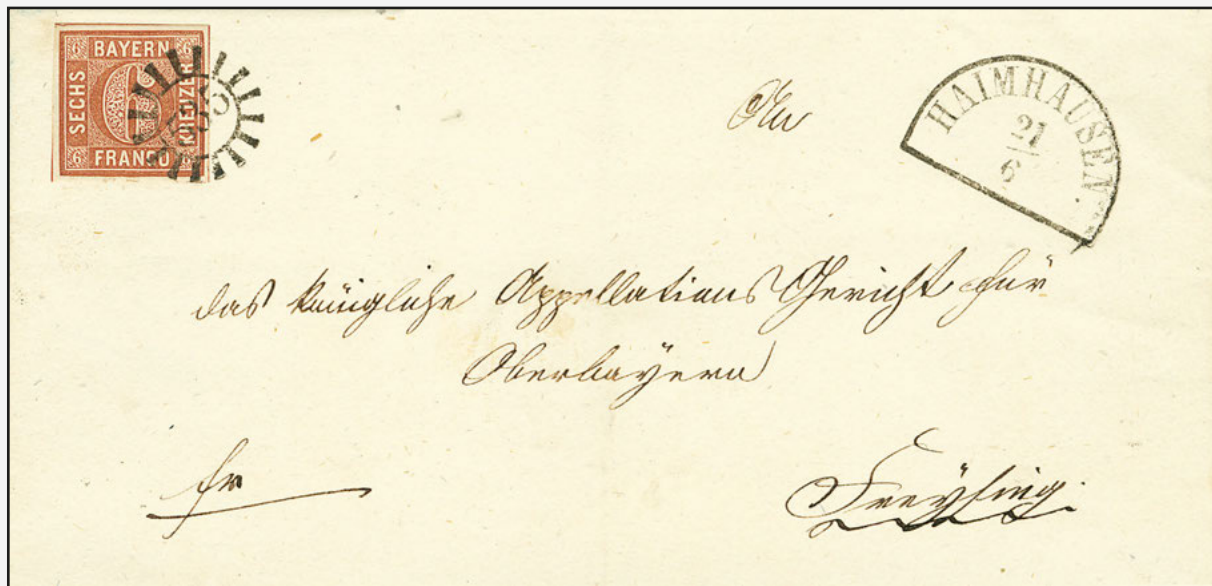 6 BAYERN 6
SECHS
6
KREUZER
6 FRANCO
HAIMHAUSEN
21
6
An
das königliche Appellations Gericht für
Oberbayern
fr
Freysing.